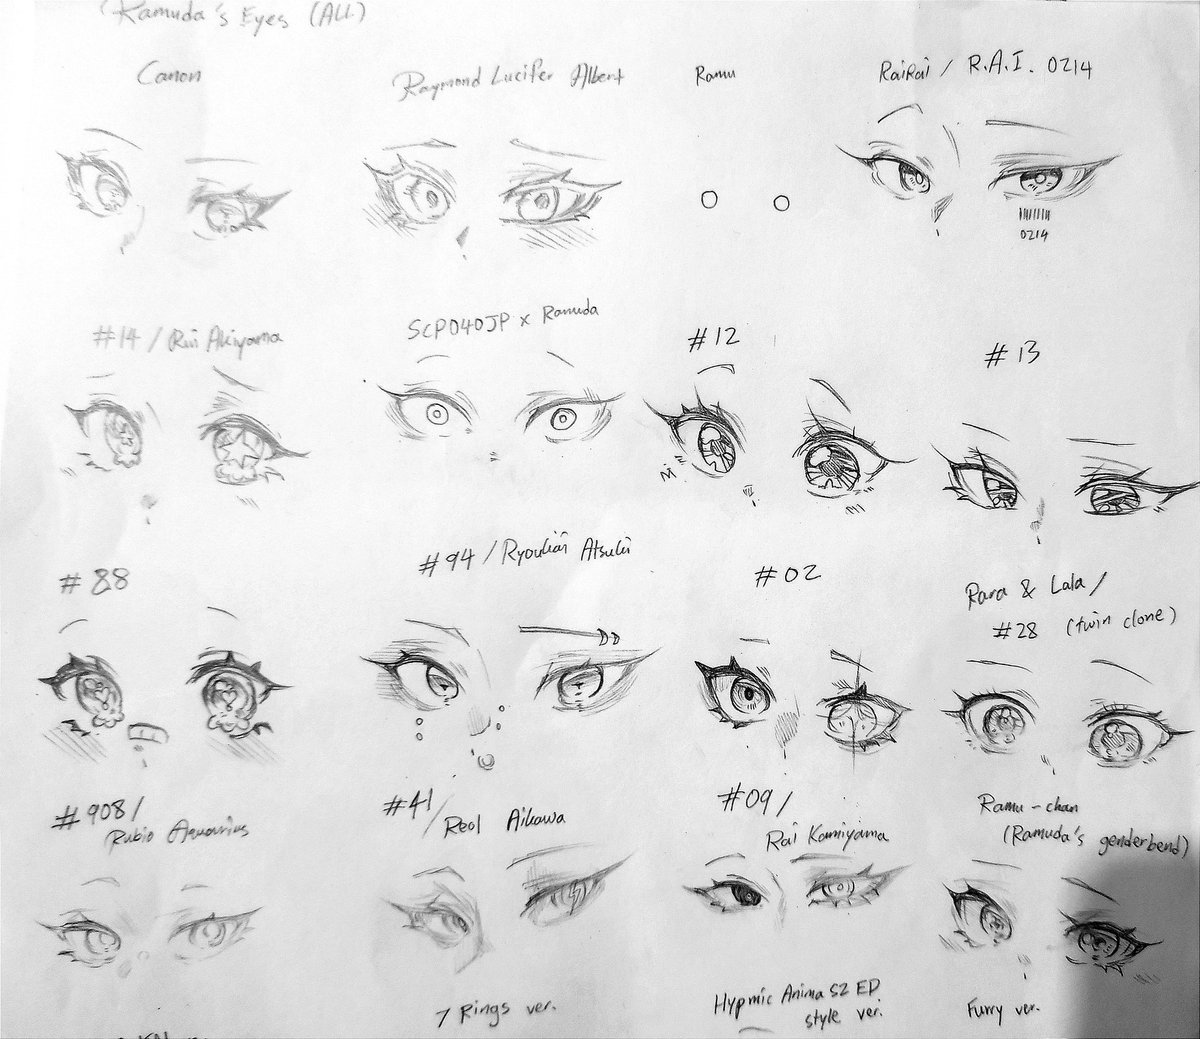 Ramuda's Eyes (ALL)
Canon
Raymond Lucifer Albert
Ramu
RaiRai / R.A.I. 0214
0214
#14 / Rui Akiyama
SCP040JP x Ramuda
#12
#13
#88
#94 / Atsuki
#02
Rara & Lala /
#28 (twin clone)
#908 /
Rubio Aquarius
#41 /
Reol Aikawa
#09 /
Rai Kamiyama
Ramu-chan
(Ramuda's genderbend)
7 Rings ver.
Hypmic Anima S2 ED
style ver.
Furry ver.